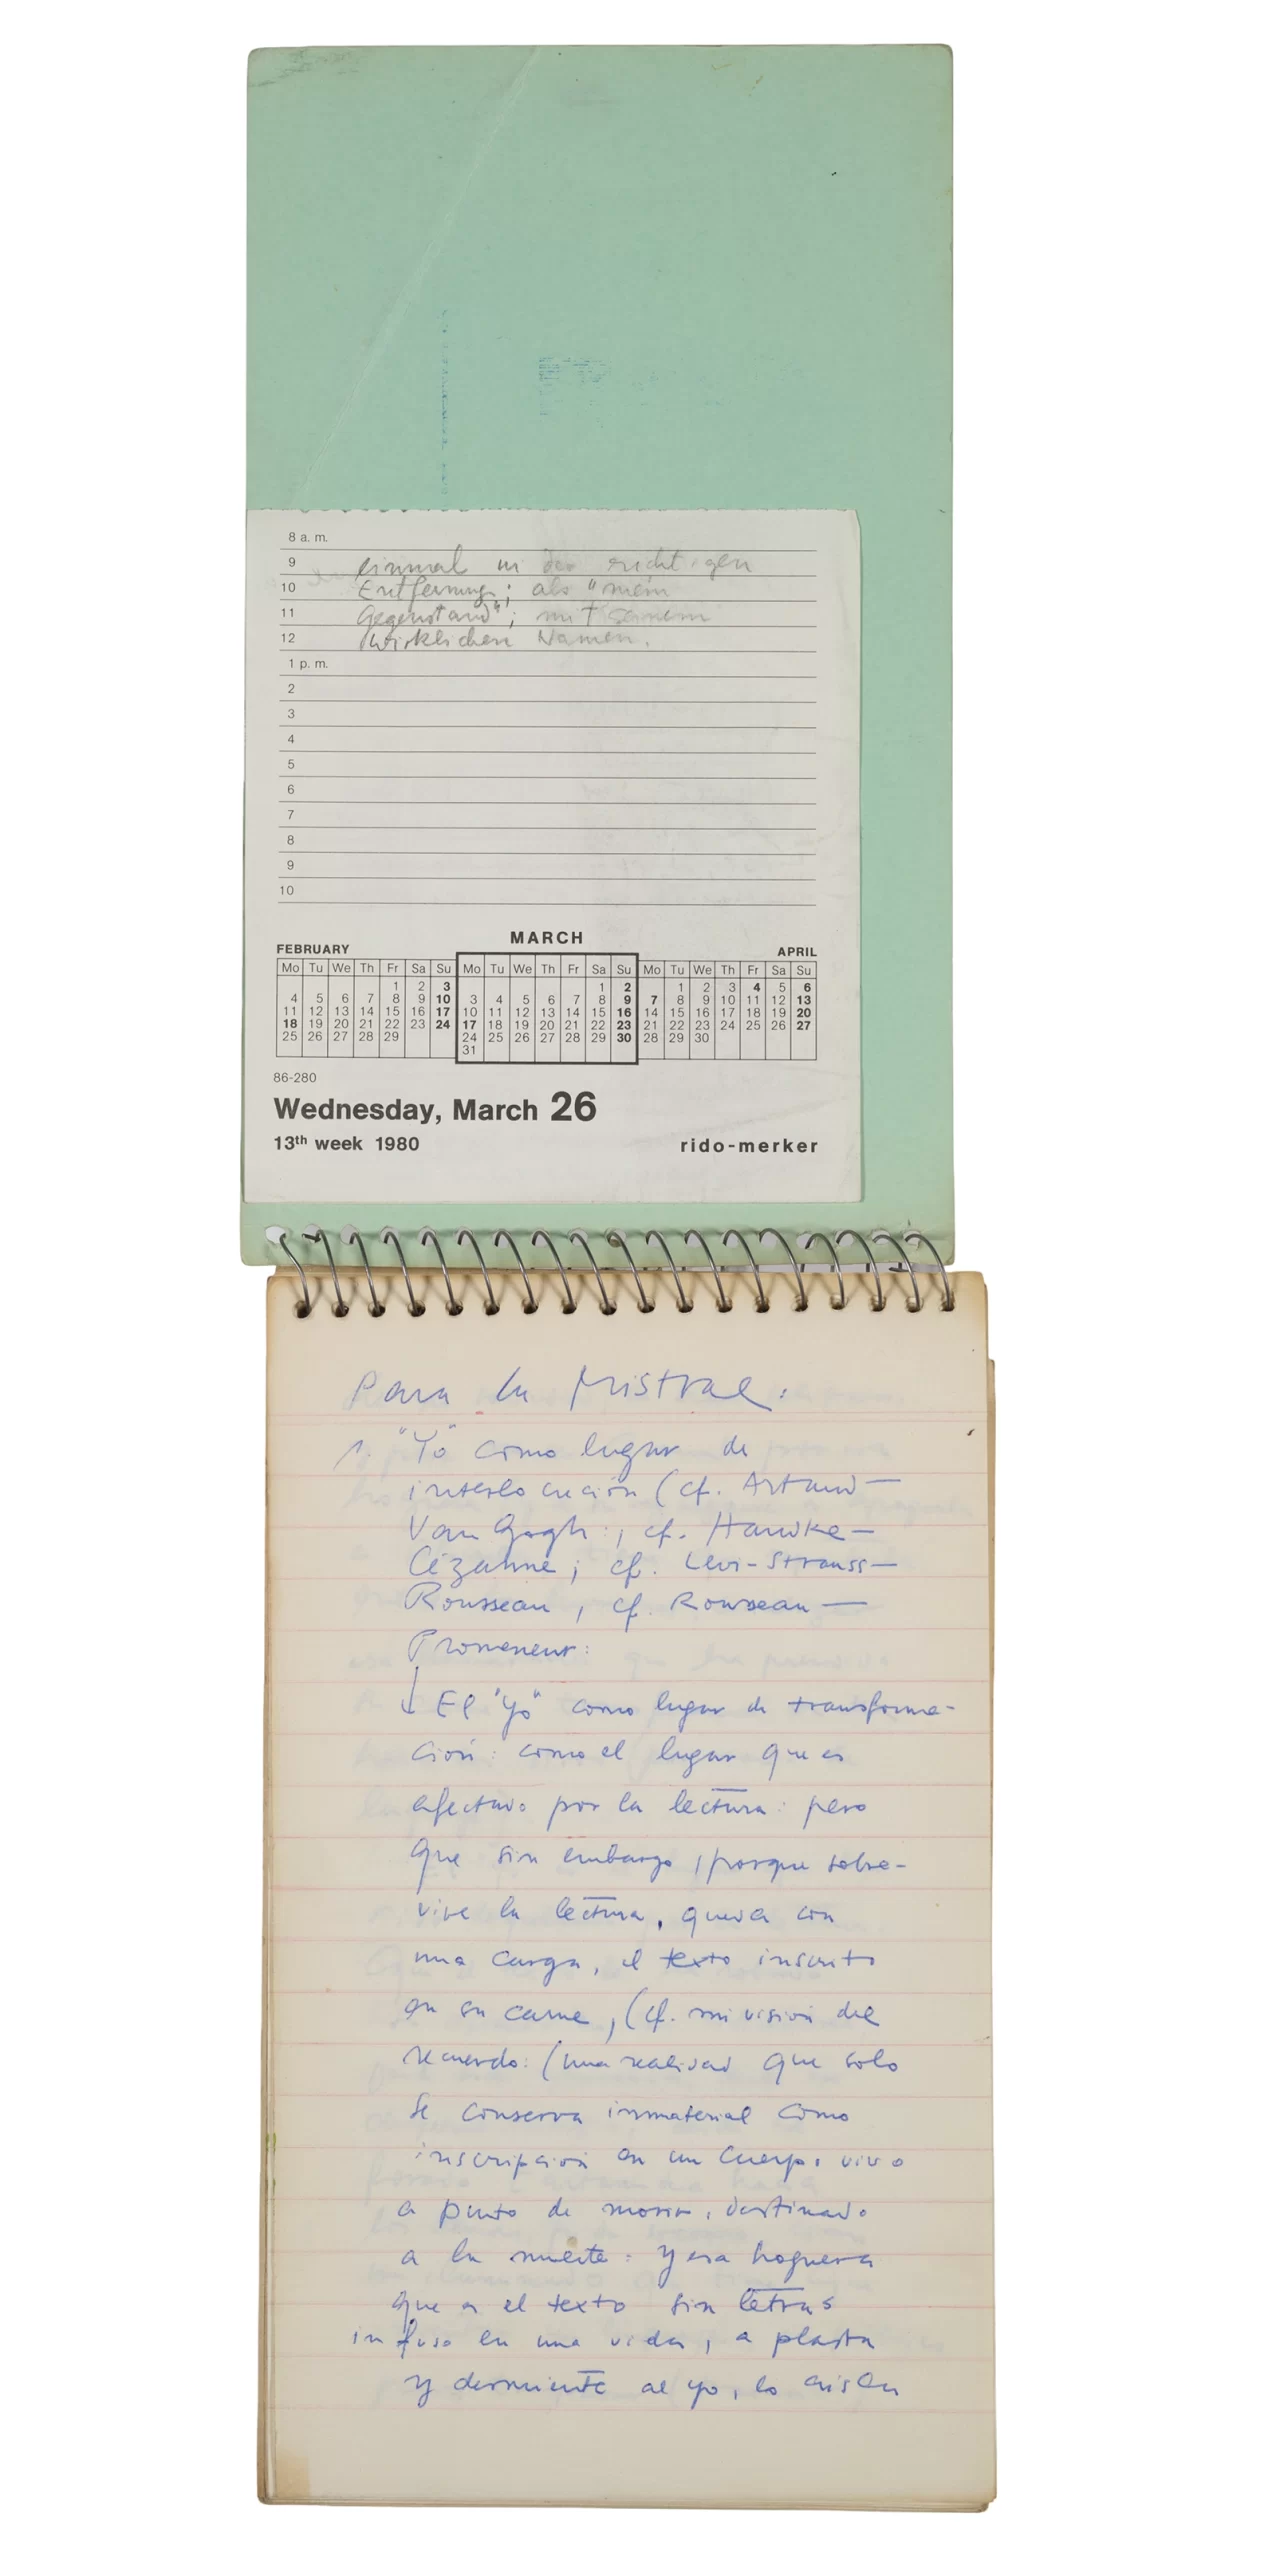 8 a.m.
9 einmal in der richtigen
10 Entfernung; als "mein
11 Gegenstand"; mit seinem
12 wirklichen Namen.
1 p.m.
2
3
4
5
6
7
8
9
10
FEBRUARY MARCH APRIL
Mo Tu We Th Fr Sa Su Mo Tu We Th Fr Sa Su Mo Tu We Th Fr Sa Su
1 2 3 1 2 1 2 3 4 5 6
4 5 6 7 8 9 10 3 4 5 6 7 8 9 7 8 9 10 11 12 13
11 12 13 14 15 16 17 10 11 12 13 14 15 16 14 15 16 17 18 19 20
18 19 20 21 22 23 24 17 18 19 20 21 22 23 21 22 23 24 25 26 27
25 26 27 28 29 24 25 26 27 28 29 30 28 29 30
31
86-280
Wednesday, March 26
13th week 1980 rido-merker
Para la Mistral:
1. "Yo" como lugar de
interlocución (cf. Artaud—
Van Gogh; cf. Handke—
Cézanne; cf. Levi-Strauss—
Rousseau, cf. Rousseau—
Promeneur:
↓ El "yo" como lugar de transforma-
ción: como el lugar que es
afectado por la lectura: pero
que sin embargo, porque sobre-
vive la lectura, queda con
una carga, el texto inscrito
en su carne, (cf. mi visión del
recuerdo: (una realidad que solo
se conserva inmaterial como
inscripción en un cuerpo vivo
a punto de morir, destinado
a la muerte: y esa hoguera
que es el texto sin letras
infuso en una vida, aplasta
y derrite al yo, lo aisla